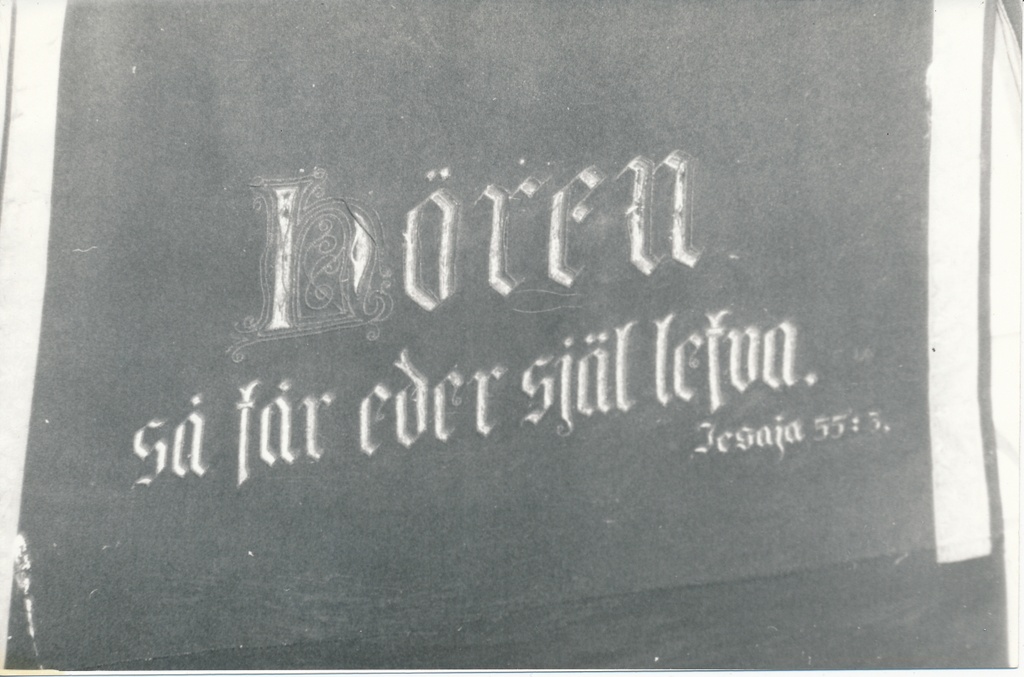 Hören
så får eder själ lefva.
Jesaja 55:3.